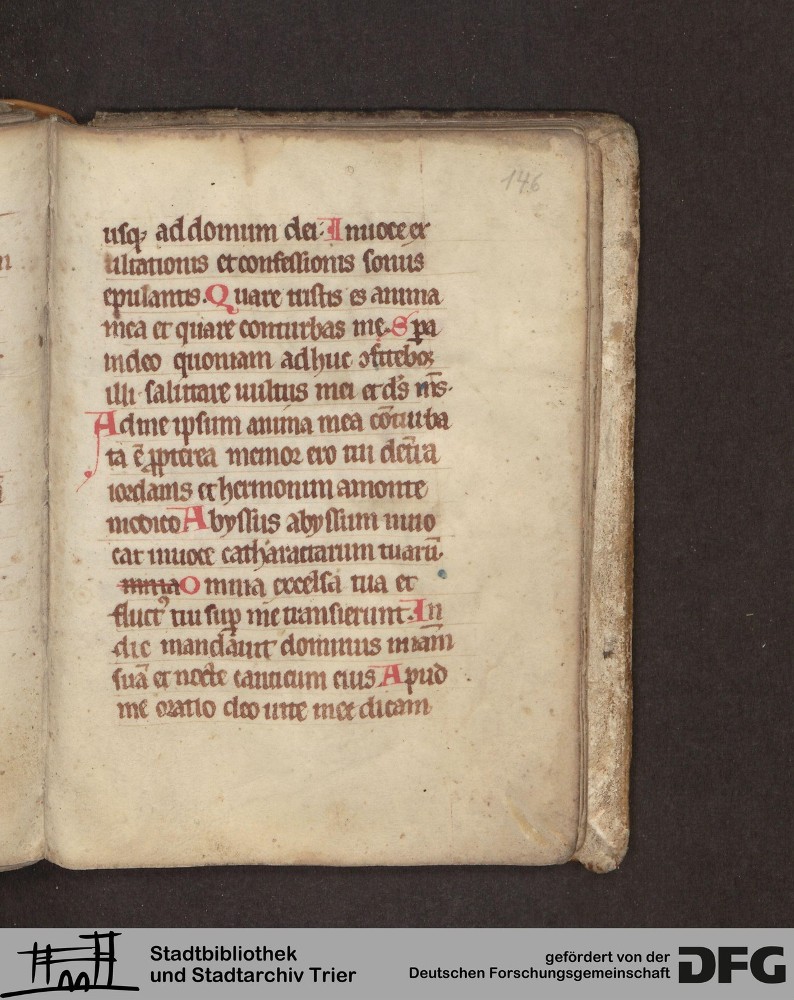 146
usq; ad domum dei. In uoce ex
ultationis et confessionis sonus
epulantis. Quare tristis es anima
mea et quare conturbas me. Spa
in deo quoniam adhuc ꝯfitebor
illi salutare uultus mei et ds̄ ms̄.
Ad me ipsum anima mea cōturba
ta ē ꝓpterea memor ero tui de tr̄a
iordanis et hermonum a monte
modico Abyssus abyssum inuo
cat in uoce catharactarum tuarū.
mnia Omnia excelsa tua et
fluctꝰ tui suꝑ me transierunt. In
die mandāuit dominus mīam
suā et nocte canticum eius Apud
me oratio deo uite mee dicam
Stadtbibliothek
und Stadtarchiv Trier
gefördert von der
Deutschen Forschungsgemeinschaft
DFG